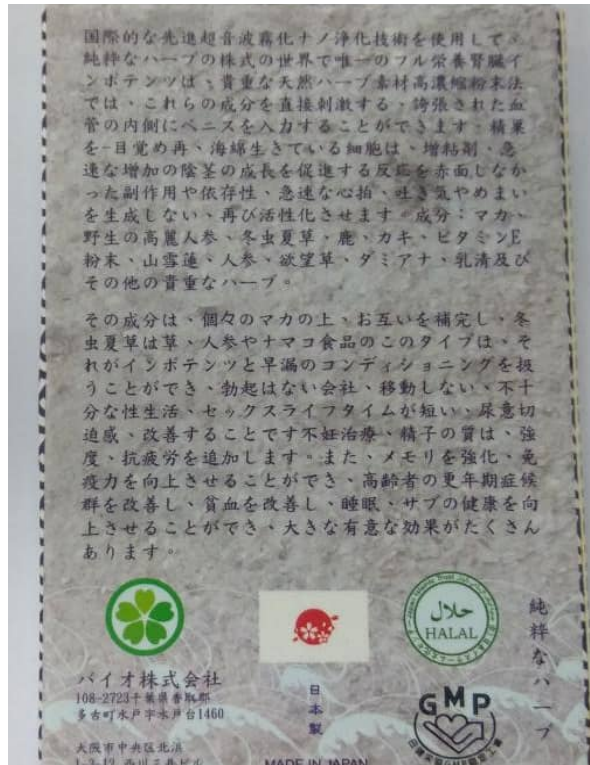 国際的な先進超音波霧化ナノ浄化技術を使用して、
純粋なハーブの株式の世界で唯一のフル栄養腎臓イ
ンポテンツは、貴重な天然ハーブ素材高濃縮粉末法
では、これらの成分を直接刺激する、誇張された血
管の内側にペニスを入力することができます。精巣
を-目覚め再、海綿生きている細胞は、増粘剤、急
速な増加の陰茎の成長を促進する反応を赤面しなか
った副作用や依存性、急速な心拍、吐き気やめまい
を生成しない、再び活性化させます。成分:マカ、
野生の高麗人参、冬虫夏草、鹿、カキ、ビタミンE
粉末、山雪蓮、人参、欲望草、ダミアナ、乳清及び
その他の貴重なハーブ。
その成分は、個々のマカの上、お互いを補完し、冬
虫夏草は草、人参やナマコ食品のこのタイプは、そ
れがインポテンツと早漏のコンディショニングを扱
うことができ、勃起はない会社、移動しない、不十
分な性生活、セックスライフタイムが短い、尿意切
迫感、改善することです不妊治療、精子の質は、強
度、抗疲労を追加します。また、メモリを強化、免
疫力を向上させることができ、高齢者の更年期症候
群を改善し、貧血を改善し、睡眠、サブの健康を向
上させることができ、大きな有意な効果がたくさん
あります。
حلال
HALAL
純粋なハーブ
バイオ株式会社
108-2723千葉県香取郡
多古町水戸字水戸台1460
日本製
GMP
大阪市中央区北浜
MADE IN JAPAN